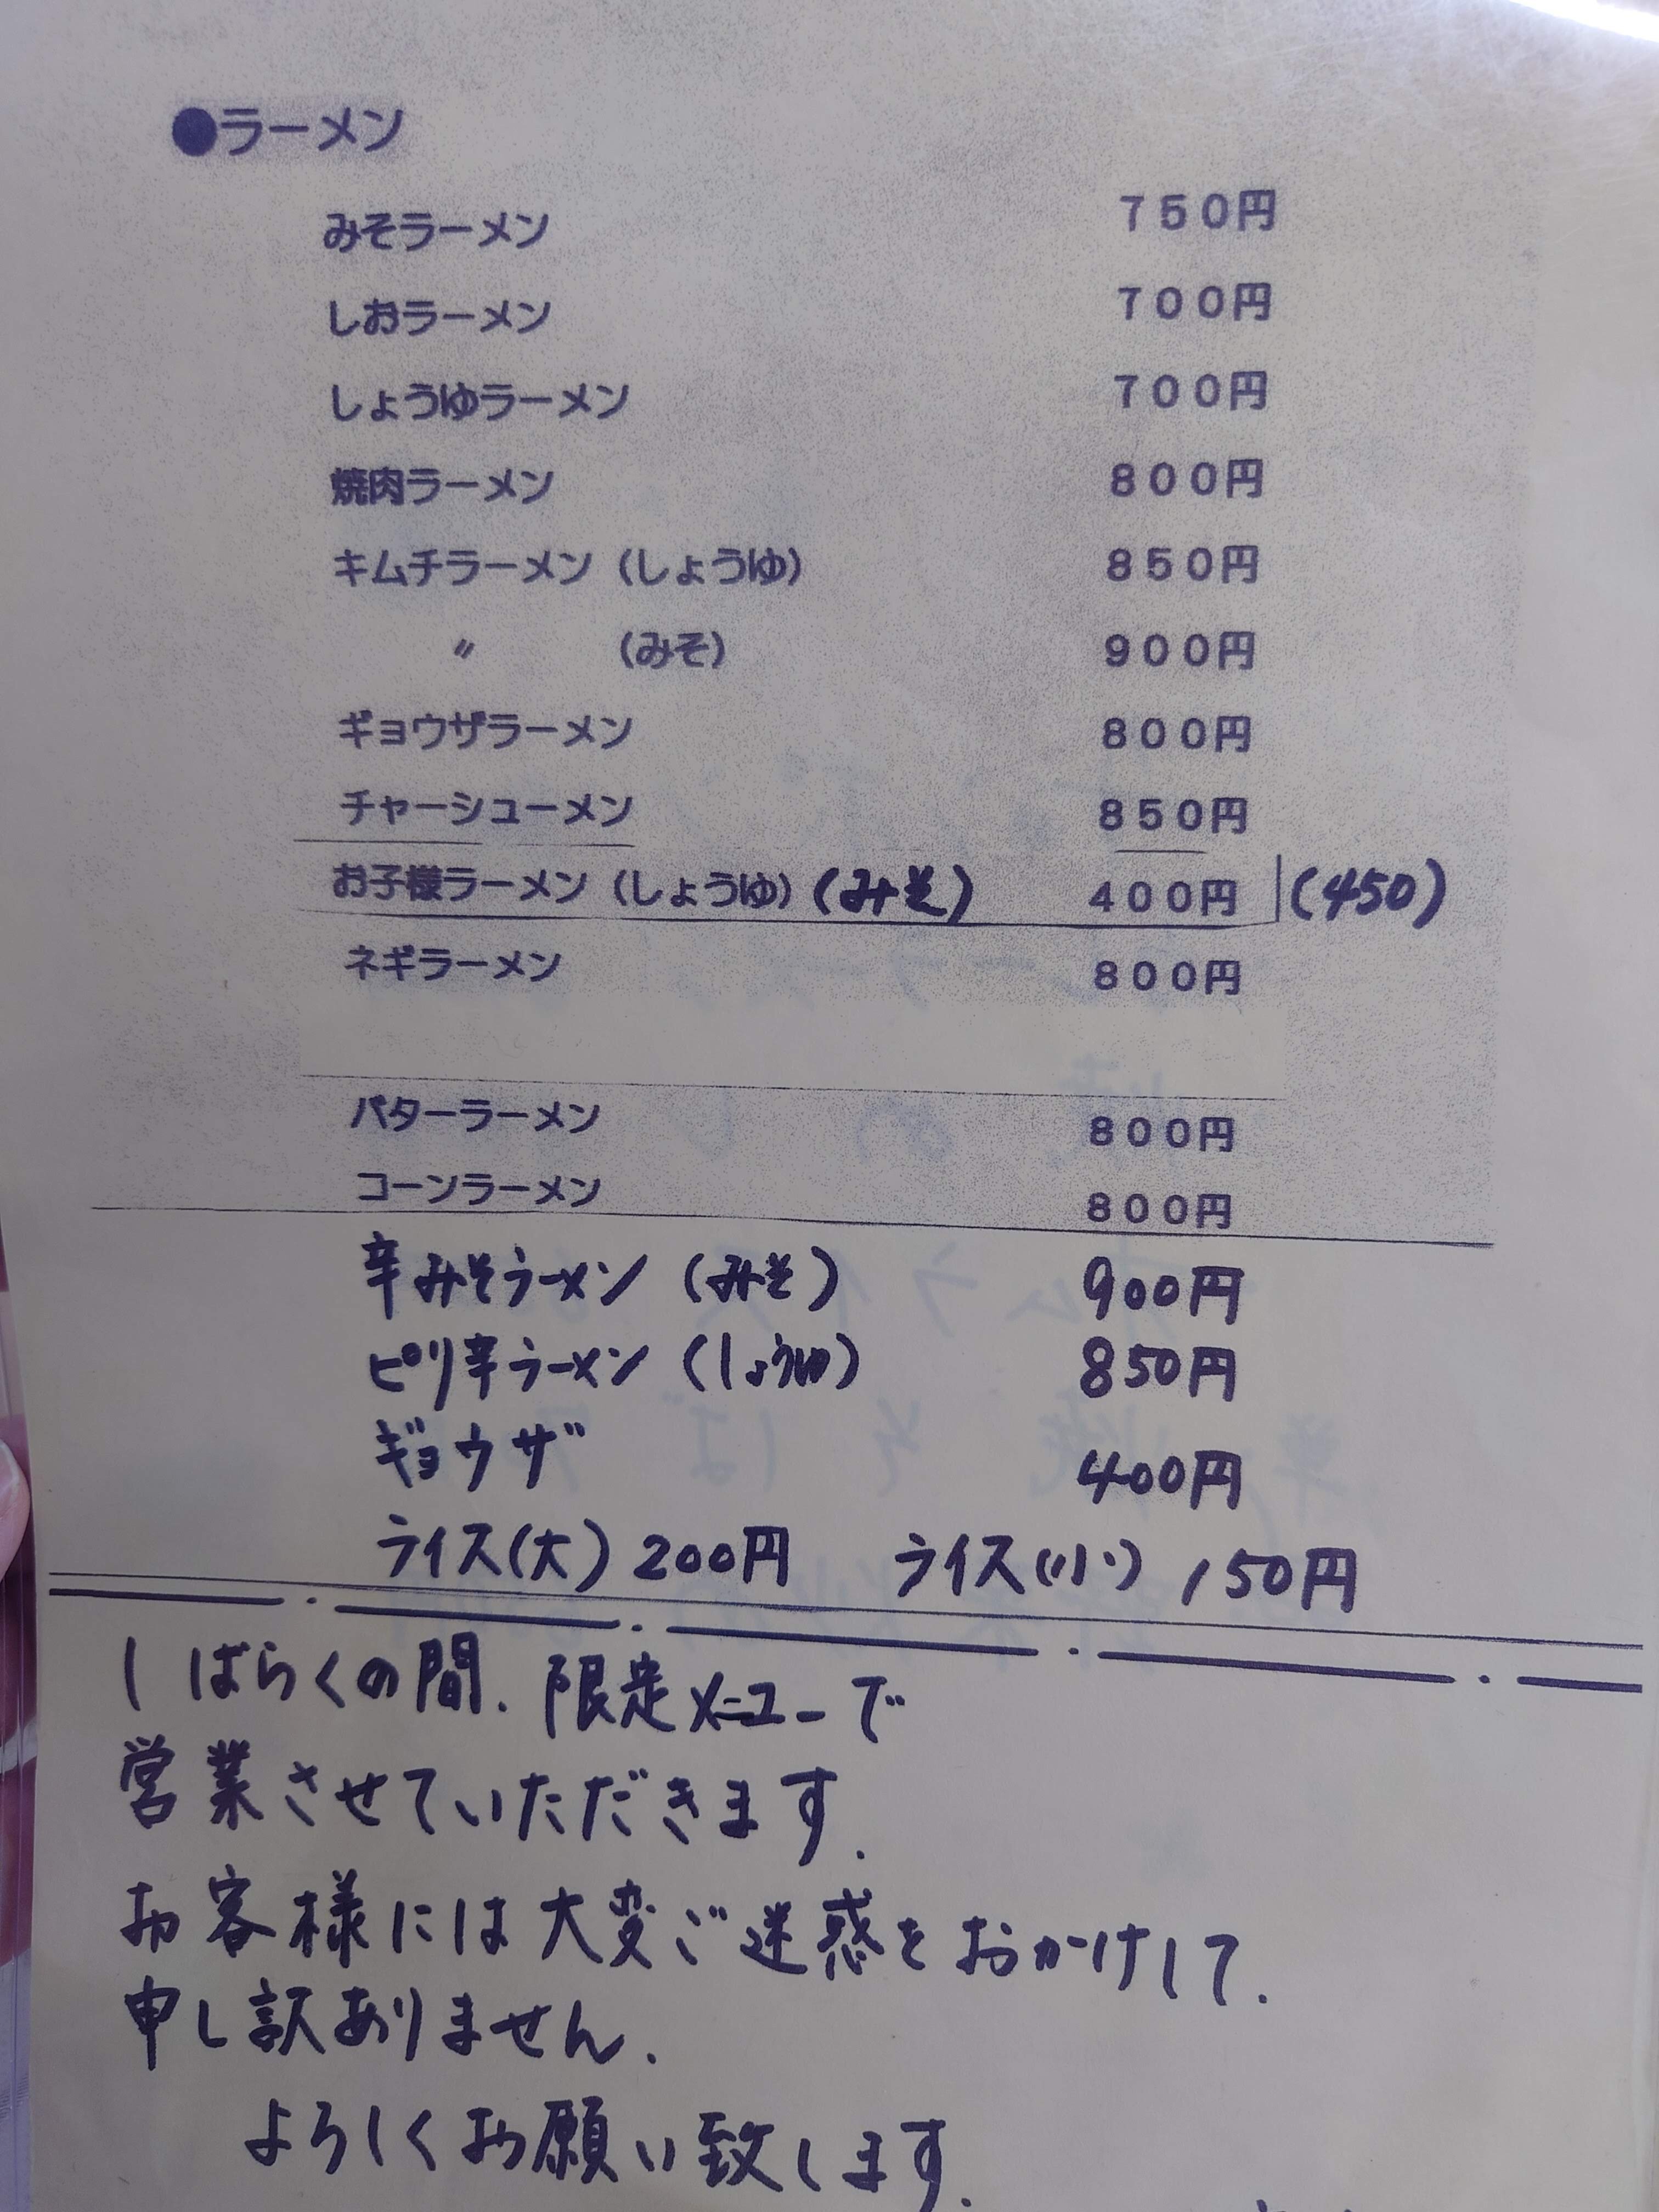 ●ラーメン
みそラーメン 750円
しおラーメン 700円
しょうゆラーメン 700円
焼肉ラーメン 800円
キムチラーメン（しょうゆ） 850円
〃 （みそ） 900円
ギョウザラーメン 800円
チャーシューメン 850円
お子様ラーメン（しょうゆ）(みそ) 400円 (450)
ネギラーメン 800円
バターラーメン 800円
コーンラーメン 800円
辛みそラーメン (みそ) 900円
ピリ辛ラーメン (しょうゆ) 850円
ギョウザ 400円
ライス(大) 200円 ライス(小) 150円
しばらくの間、限定メニューで
営業させていただきます.
お客様には大変ご迷惑をおかけして.
申し訳ありません.
よろしくお願い致します.